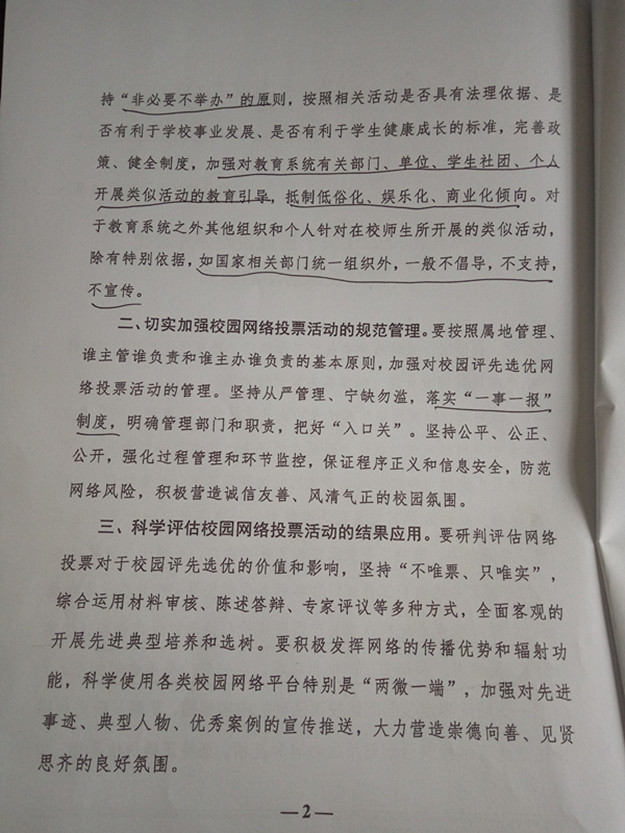 持“非必要不举办”的原则，按照相关活动是否具有法理依据、是
否有利于学校事业发展、是否有利于学生健康成长的标准，完善政
策、健全制度，加强对教育系统有关部门、单位、学生社团、个人
开展类似活动的教育引导，抵制低俗化、娱乐化、商业化倾向。对
于教育系统之外其他组织和个人针对在校师生所开展的类似活动，
除有特别依据，如国家相关部门统一组织外，一般不倡导，不支持，
不宣传。
二、切实加强校园网络投票活动的规范管理。要按照属地管理、
谁主管谁负责和谁主办谁负责的基本原则，加强对校园评先选优网
络投票活动的管理。坚持从严管理、宁缺勿滥，落实“一事一报”
制度，明确管理部门和职责，把好“入口关”。坚持公平、公正、
公开，强化过程管理和环节监控，保证程序正义和信息安全，防范
网络风险，积极营造诚信友善、风清气正的校园氛围。
三、科学评估校园网络投票活动的结果应用。要研判评估网络
投票对于校园评先选优的价值和影响，坚持“不唯票、只唯实”，
综合运用材料审核、陈述答辩、专家评议等多种方式，全面客观的
开展先进典型培养和选树。要积极发挥网络的传播优势和辐射功
能，科学使用各类校园网络平台特别是“两微一端”，加强对先进
事迹、典型人物、优秀案例的宣传推送，大力营造崇德向善、见贤
思齐的良好氛围。
—2—